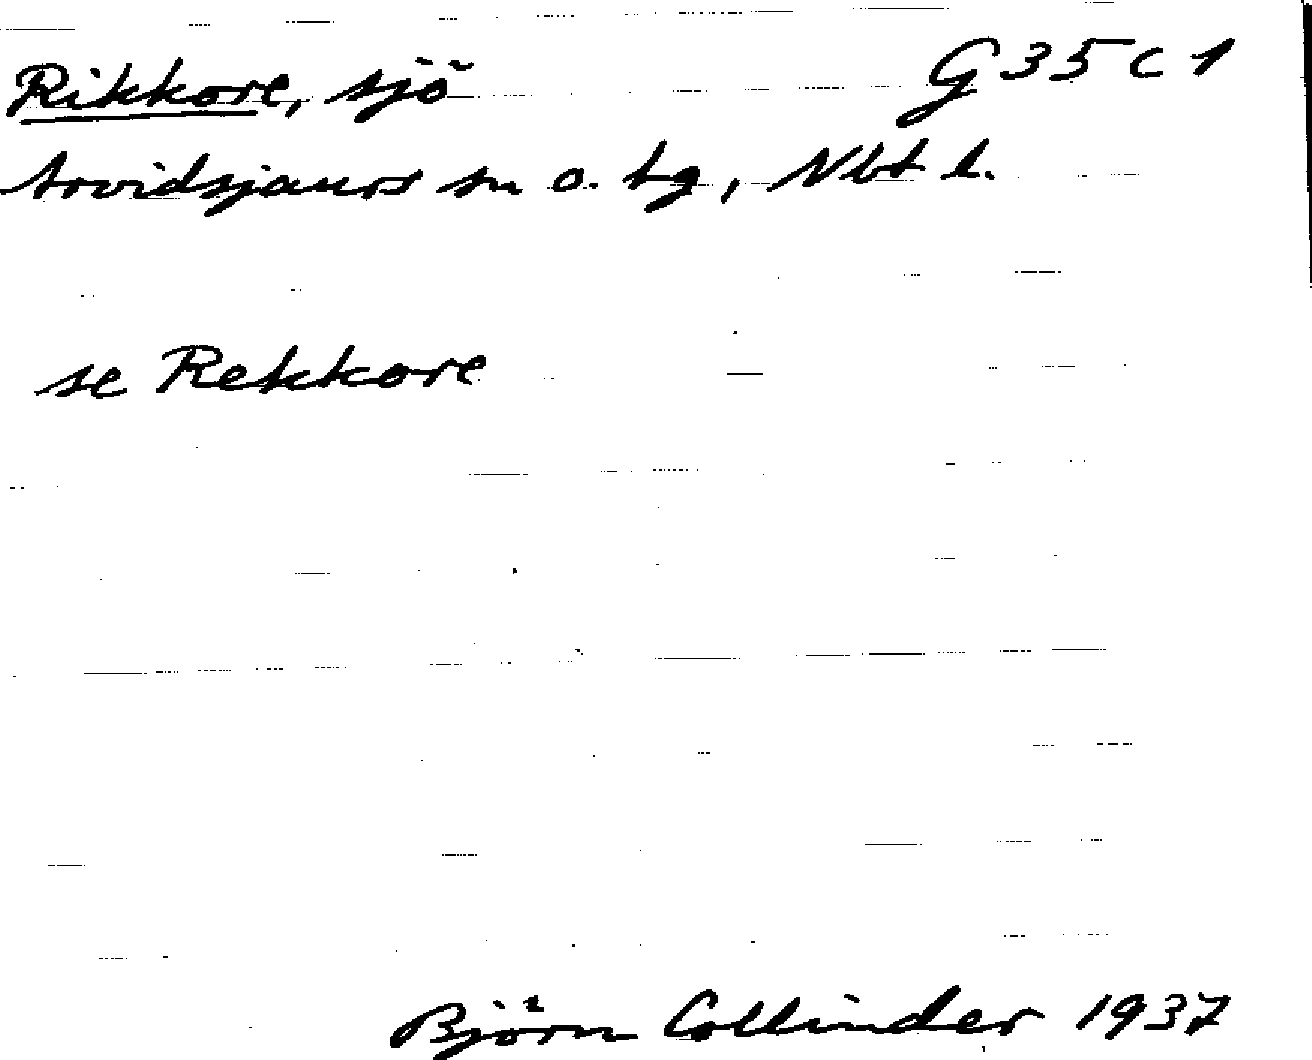 Rikkore, sjö G 35 C 1
Arvidsjaurs sn o. tg, Nbt l.
se Rekkore
Björn Collinder 1937